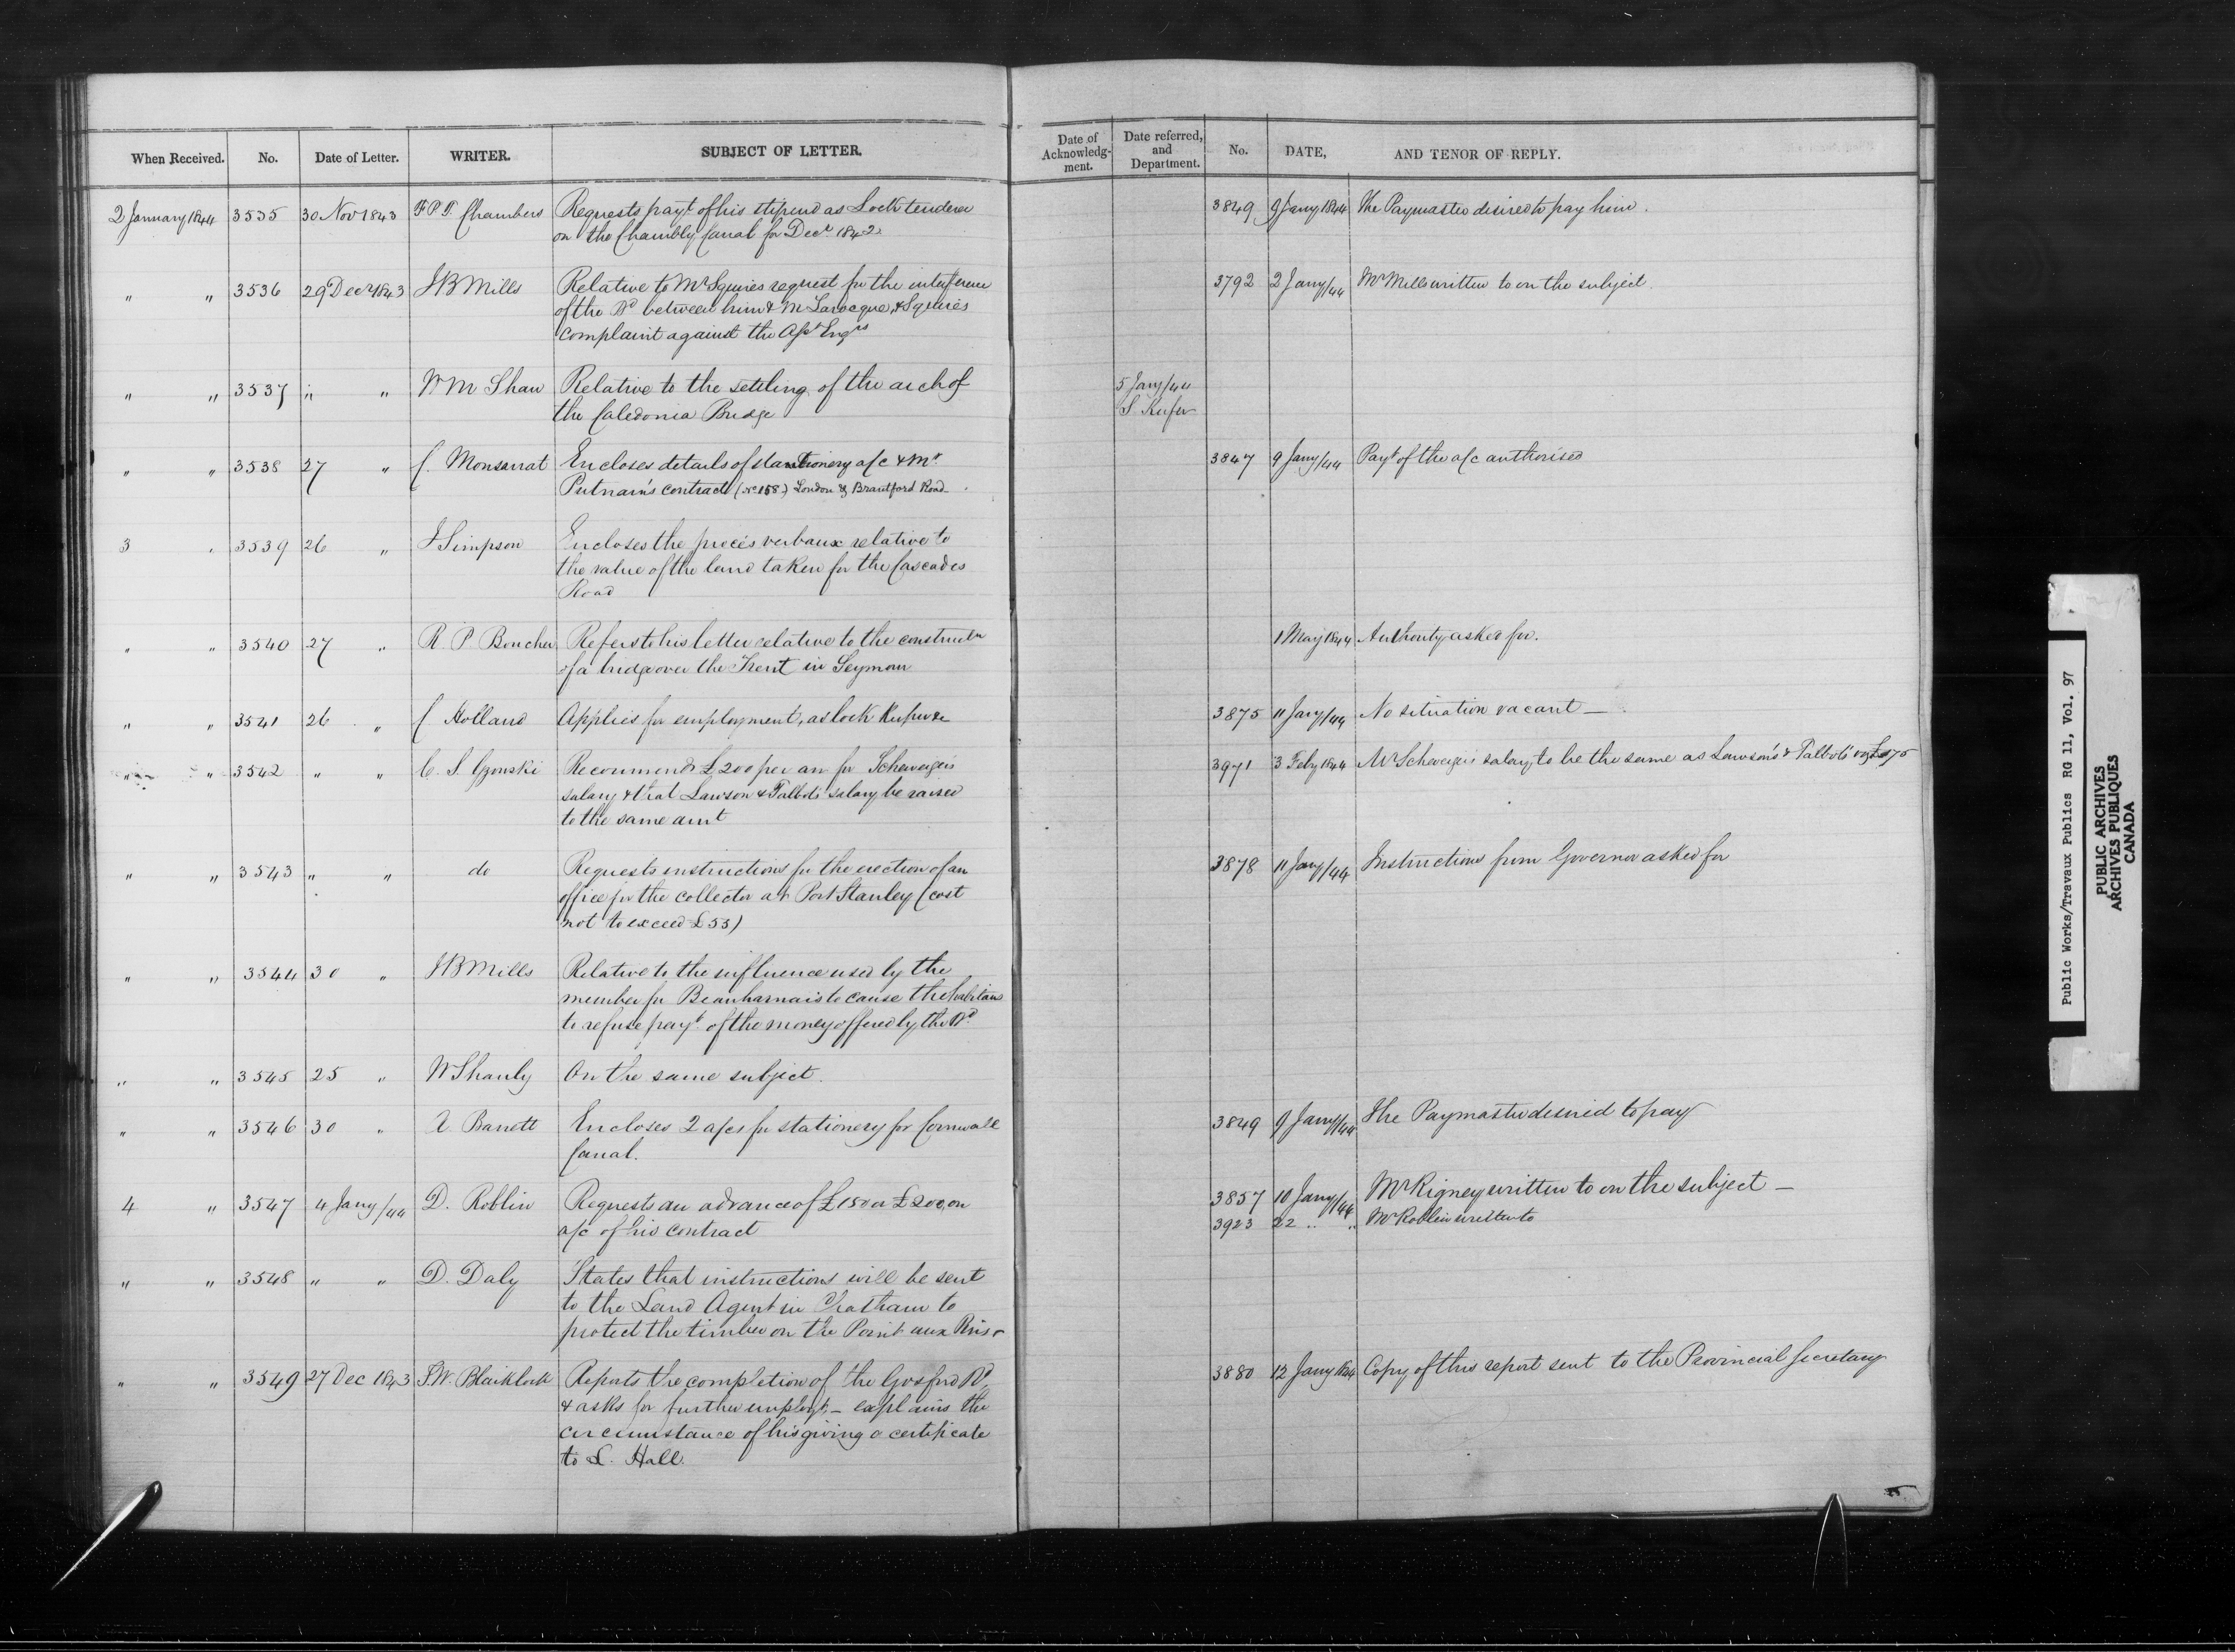 When Received. No. Date of Letter. WRITER. SUBJECT OF LETTER.
2 January 1844 3535 30 Nov 1843 F P T. Chambers Requests payt of his stipend as Lock tender
on the Chambly Canal for Decr 1842
" " 3536 29 Decr 1843 J B Mills Relative to Mr Squires request for the interference
of the Bd between him & M Larocque, & Squires
complaint against the Asst Engrs
" " 3537 " " W M Shaw Relative to the settling of the arch of
the Caledonia Bridge
" " 3538 27 " C. Monsarrat Encloses details of stantionery a/c & Mr
Putnam's contract (No 158) London & Brantford Road
3 " 3539 26 " J Simpson Encloses the procès verbaux relative to
the value of the land taken for the Cascades
Road
" " 3540 27 " R. P Boucher Refers to his letter relative to the constructn
of a bridge over the Trent in Seymour
" " 3541 26 " C Holland Applies for employment, as lock Keeper &c
" " 3542 " " C. S. Gzowski Recommends £200 per an for Scheveizer's
salary & that Lawson & Talbots salary be raised
to the same amt
" " 3543 " " do Requests instructions for the erection of an
office for the collector at Port Stanley (cost
not to exceed £53)
" " 3544 30 " J B Mills Relative to the influence used by the
member for Beauharnais to cause the habitans
to refuse payt of the money offered by the Bd
" " 3545 25 " W Shanly On the same subject.
" " 3546 30 " A. Barrett Encloses 2 a/cs for stationery for Cornwall
Canal.
4 " 3547 4 Jany/44 D. Roblin Requests an advance of £150 or £200, on
a/c of his contract
" " 3548 " " D. Daly States that instructions will be sent
to the Land Agent in Chatham to
protect the timber on the Point aux Pins
" " 3549 27 Dec 1843 F.W. Blaiklock Reports the completion of the Gosford Rd,
& asks for further employt, – explains the
circumstance of his giving a certificate
to L. Hall.
Date of Acknowledg-ment. Date referred, and Department. No. DATE, AND TENOR OF REPLY.
3849 9 Jany 1844 The Paymaster desired to pay him.
3792 2 Jany/44 Mr Mills written to on the subject.
5 Jany/44
S. Keefer
3847 9 Jany/44 Payt of the a/c authorised
1 May 1844 Authority asked for.
3875 11 Jany/44 No situation vacant —
3971 3 Feby 1844 Mr Scheveizer's salary to be the same as Lawson's & Talbots' viz £175
3878 11 Jany/44 Instructions from Governor asked for
3849 9 Jany/44 The Paymaster desired to pay
3857 10 Jany/44 Mr Rigney written to on the subject —
3923 22 " " Mr Roblin written to
3880 12 Jany 1844 Copy of this report sent to the Provincial Secretary
Public Works/Travaux Publics RG 11, Vol. 97
PUBLIC ARCHIVES
ARCHIVES PUBLIQUES
CANADA